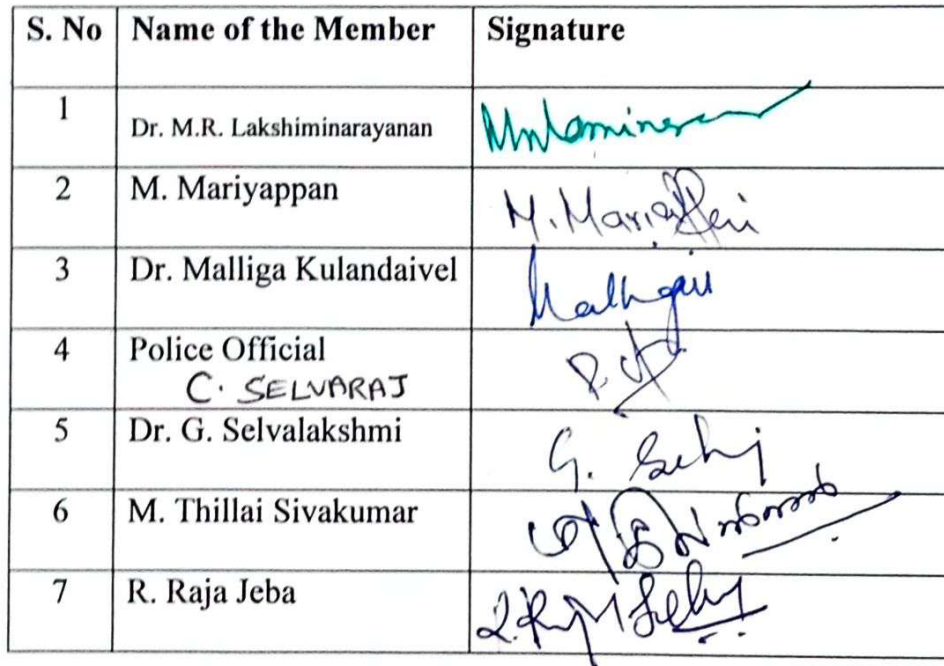 S. No Name of the Member Signature
1 Dr. M.R. Lakshiminarayanan
2 M. Mariyappan M. Mariappan
3 Dr. Malliga Kulandaivel
4 Police Official
C. SELVARAJ
5 Dr. G. Selvalakshmi G.
6 M. Thillai Sivakumar
7 R. Raja Jeba